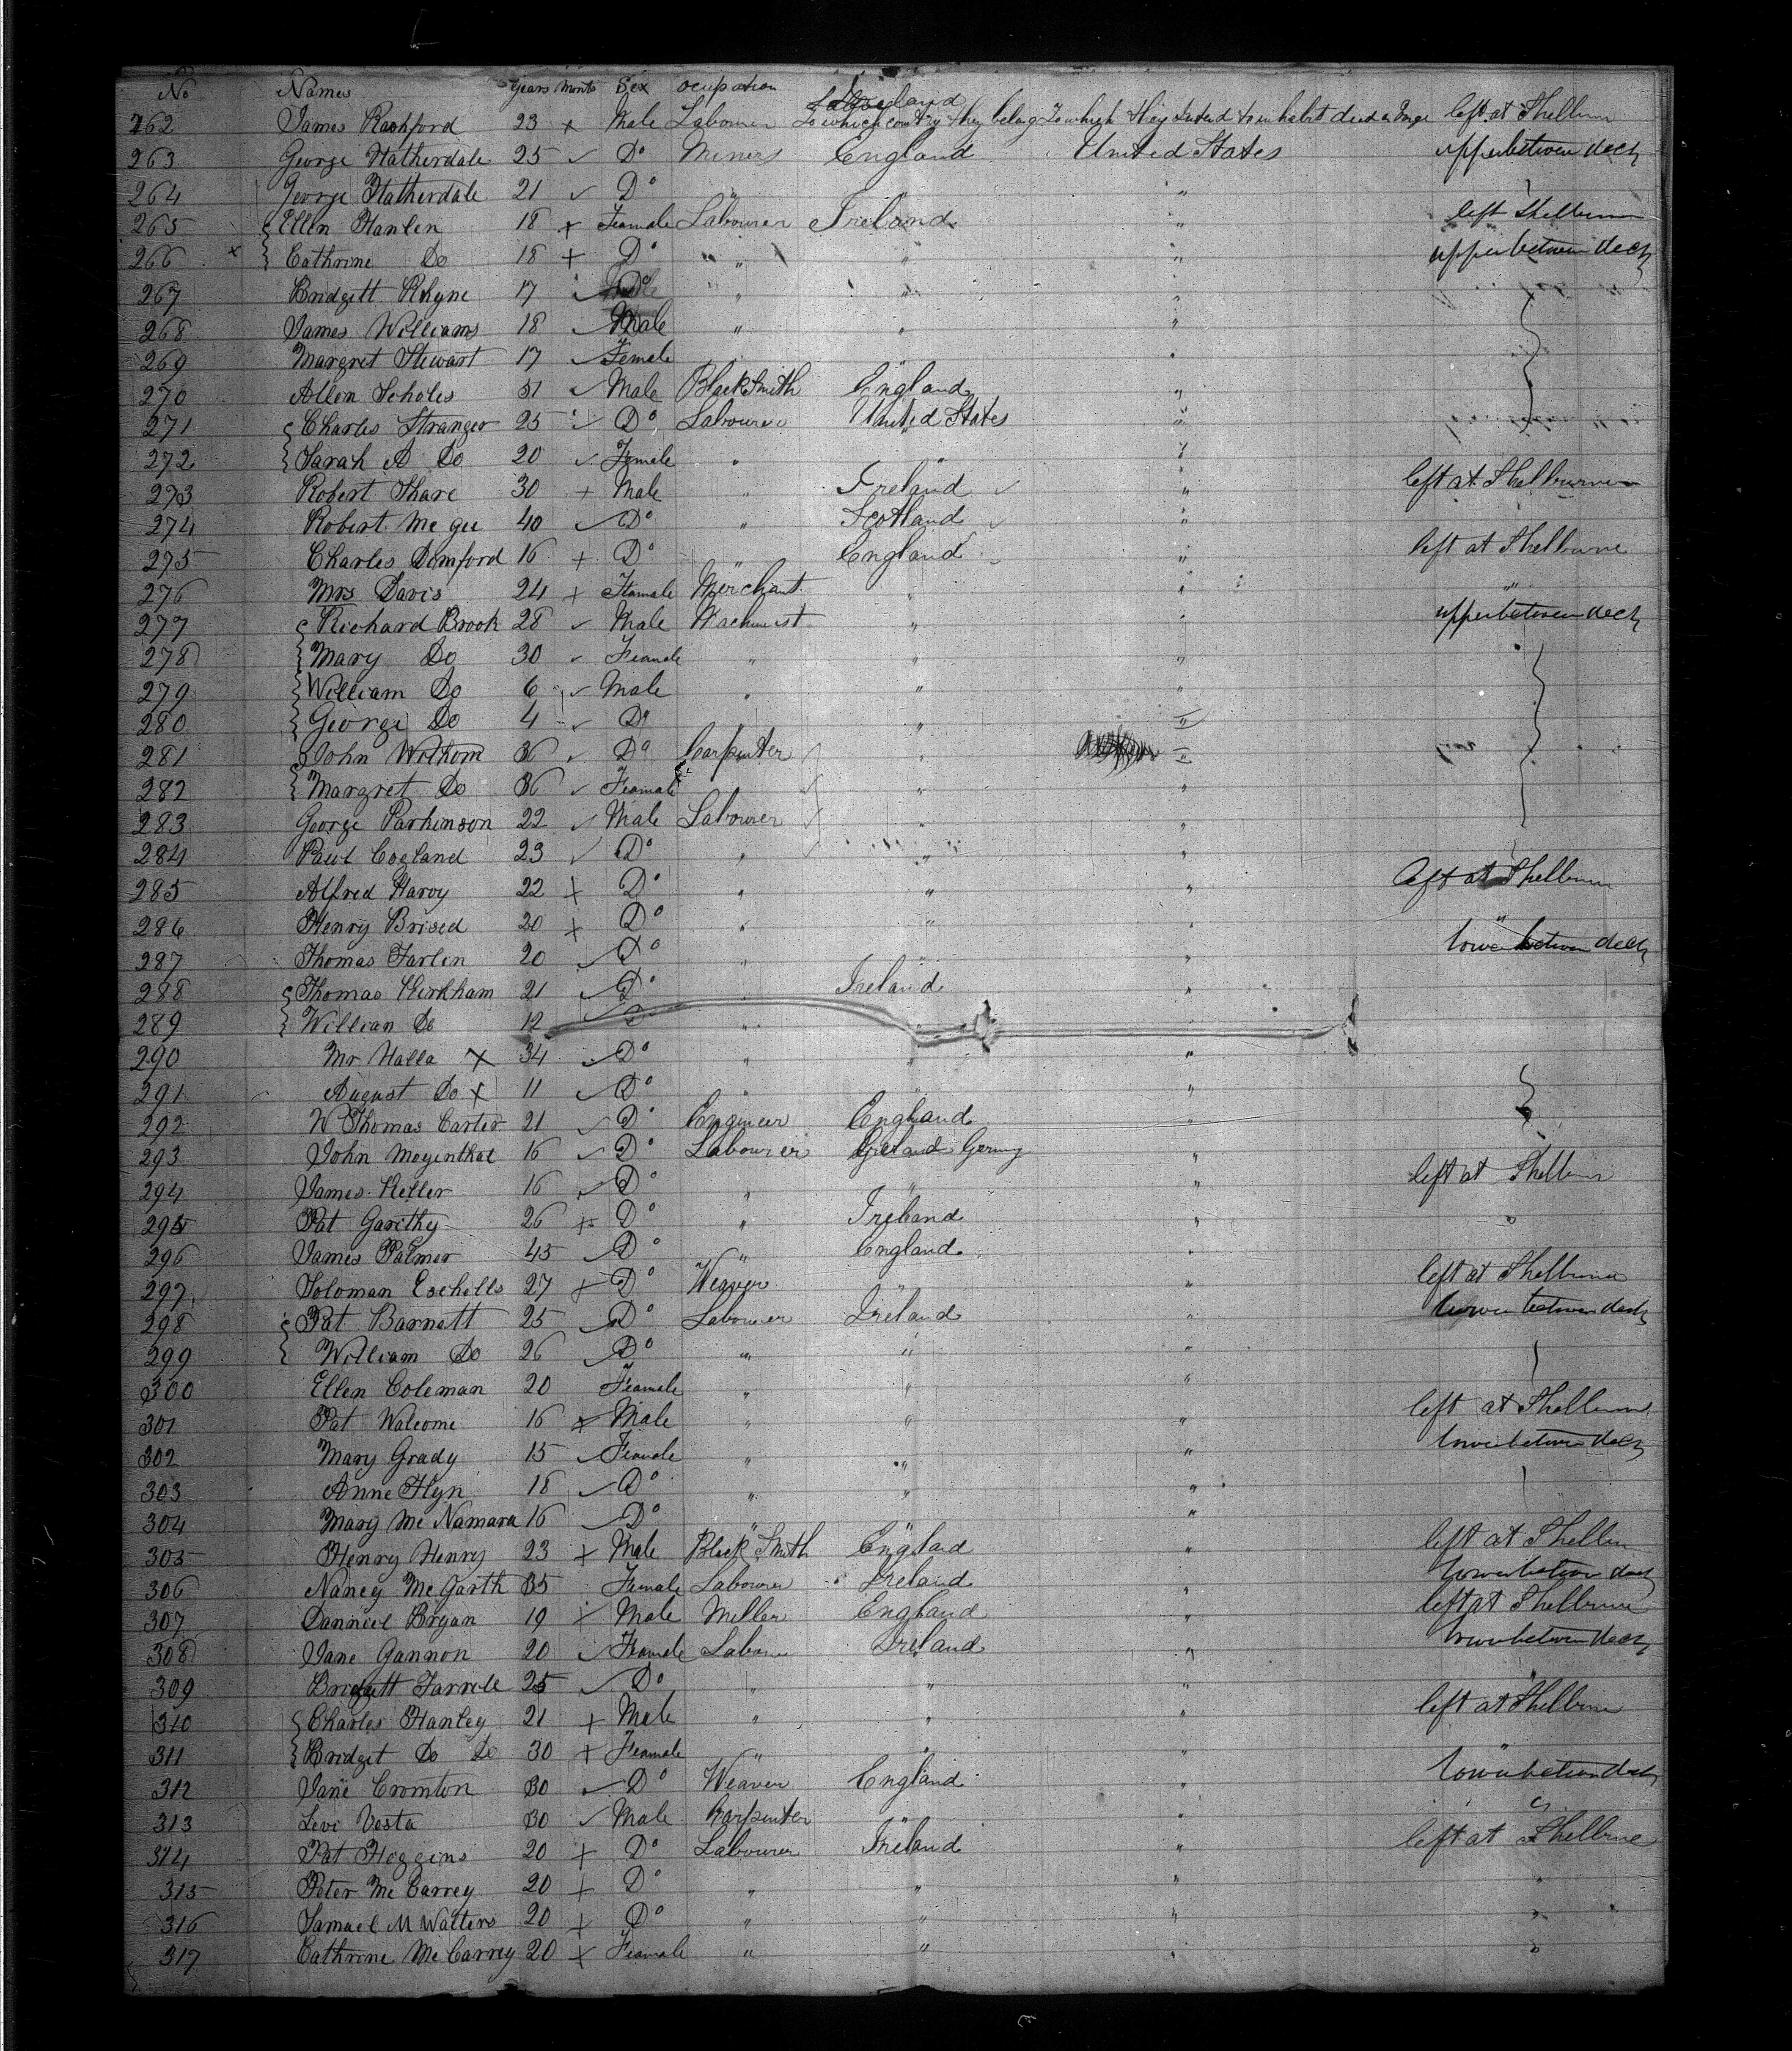 No Names Years Monts Sex ocupation
Ireland
262 James Rachford 23 x Male Labourer To which country they belong To which they intend to inhabit left at Shelburn
263 George Hatherdale 25 ✓ Do Miners England United States upper between deck
264 George Hatherdale 21 ✓ Do " "
265 Ellen Hanlen 18 x Female Labourer Ireland " left Shelburn
266 x Cathrine Do 18 + Do " " " upper between deck
267 Bridgitt Rhyne 17 ✓ Do " " "
268 James Williams 18 ✓ Male " " "
269 Margret Stewart 17 ✓ Female "
270 Allen Scholes 51 ✓ Male BlackSmith England "
271 Charles Stranger 25 ✓ Do Labourer United States "
272 Sarah A Do 20 ✓ Female " " "
273 Robert Share 30 + Male " Ireland ✓ " left at Shelbourne
274 Robert Mc gee 40 ✓ Do " Scotland ✓ "
275 Charles Domford 16 + Do " England " left at Shelburne
276 Mrs Davis 24 + Female Merchant " " "
277 Richard Brook 28 ✓ Male Machinist " " upper between deck
278 Mary Do 30 ✓ Female " " "
279 William Do 6 ✓ Male " " "
280 George Do 4 ✓ Do " " "
281 John Withom 36 ✓ Do Carpenter " "
282 Margret Do 36 ✓ Female " "
283 George Parkinson 22 ✓ Male Labourer ✓ " "
284 Paul Cogland 23 ✓ Do " " "
285 Alfred Harvy 22 + Do " " " left at Shelburn
286 Henry Brised 20 + Do " " " "
287 Thomas Farlen 20 ✓ Do " " " lower between deck
288 Thomas Kirkham 21 ✓ Do " Ireland "
289 William Do 12 ✓ Do " " "
290 Mr Halla x 34 ✓ Do " " "
291 August Do x 11 ✓ Do " " "
292 W Thomas Carter 21 ✓ Do Engineer England "
293 John Meyenthal 16 ✓ Do Labourer Germy "
294 James Keller 16 ✓ Do " " " left at Shelburn
295 Pat Garithy 26 + Do " Ireland " "
296 James Palmer 45 ✓ Do " England "
297 Soloman Eschells 27 + Do Weaver " " left at Shelburne
298 Pat Barnett 25 ✓ Do Labourer Ireland " lower between deck
299 William Do 26 ✓ Do " " "
300 Ellen Coleman 20 Female " " "
301 Pat Welcome 16 x Male " " " left at Shelburn
302 Mary Grady 15 ✓ Female " " " lower between deck
303 Anne Flyn 18 ✓ Do " " "
304 Mary Mc Namara 16 ✓ Do " " "
305 Henry Henry 23 + Male Black Smith England " left at Shelburn
306 Nancy Mc Garth 35 Female Labourer Ireland " lower between deck
307 Danniel Bryan 19 + Male Miller England " left at Shelburne
308 Jane Gannon 20 ✓ Female Labour Ireland " lower between deck
309 Bridgett Farrell 25 ✓ Do " " "
310 Charles Hanley 21 + Male " " " left at Shelburne
311 Bridget Do Do 30 + Female " " " "
312 Jane Cromton 30 ✓ Do Weaver England " lower between deck
313 Levi Vesta 30 ✓ Male Carpenter " "
314 Pat Hoggins 20 + Do Labourer Ireland " left at Shelburne
315 Peter Mc Carrey 20 + Do " " " "
316 Samuel M Walters 20 + Do " " " "
317 Cathrine Mc Carrey 20 x Female " " " "